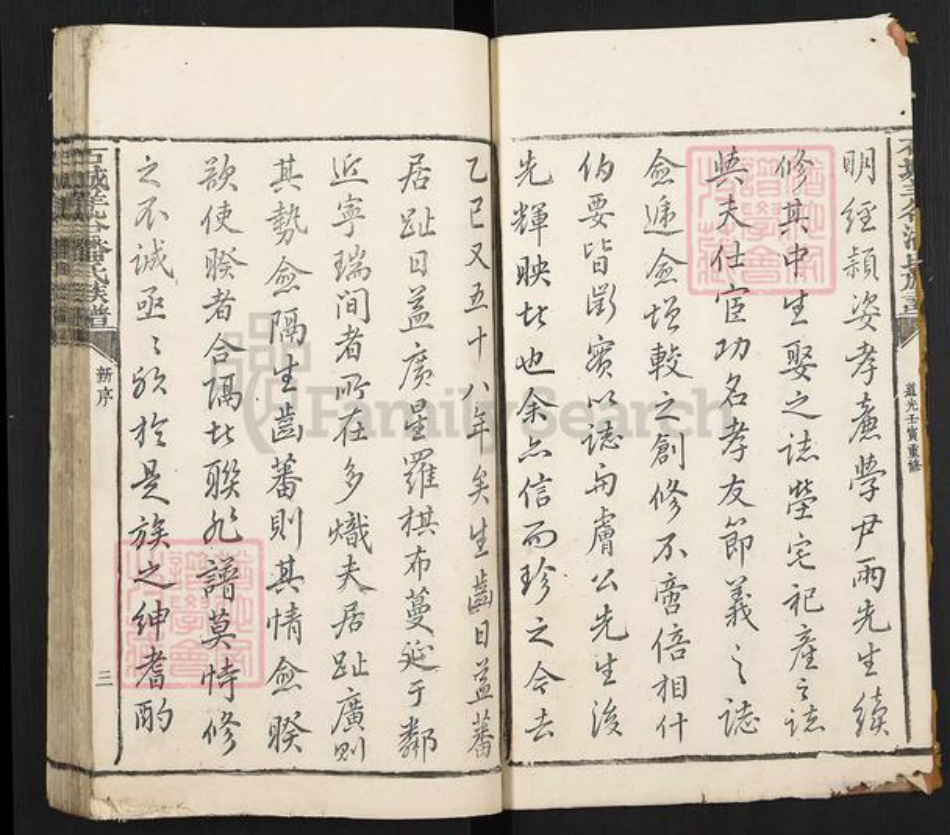 明經頴姿孝㢘學尹兩先生續
修其中生娶之誌塋宅祀產之誌
與夫仕宦功名孝友節義之誌
僉遞僉增較之創修不啻倍相什
伯要皆徵實以誌而膚公先生後
先輝映比也余亦信而珍之今去
乙巳又五十八年矣生齒日益蕃
居趾日益廣星羅棋布蔓延于鄰
近寧瑞间者所在多熾夫居趾廣則
其勢愈隔生齒蕃則其情愈睽
欲使睽者合隔比聯非譜莫恃修
之不誠亟亟欤於是族之紳耆酌
道光壬寅重修
石城羊谷潘氏族譜
新序
三
FamilySearch